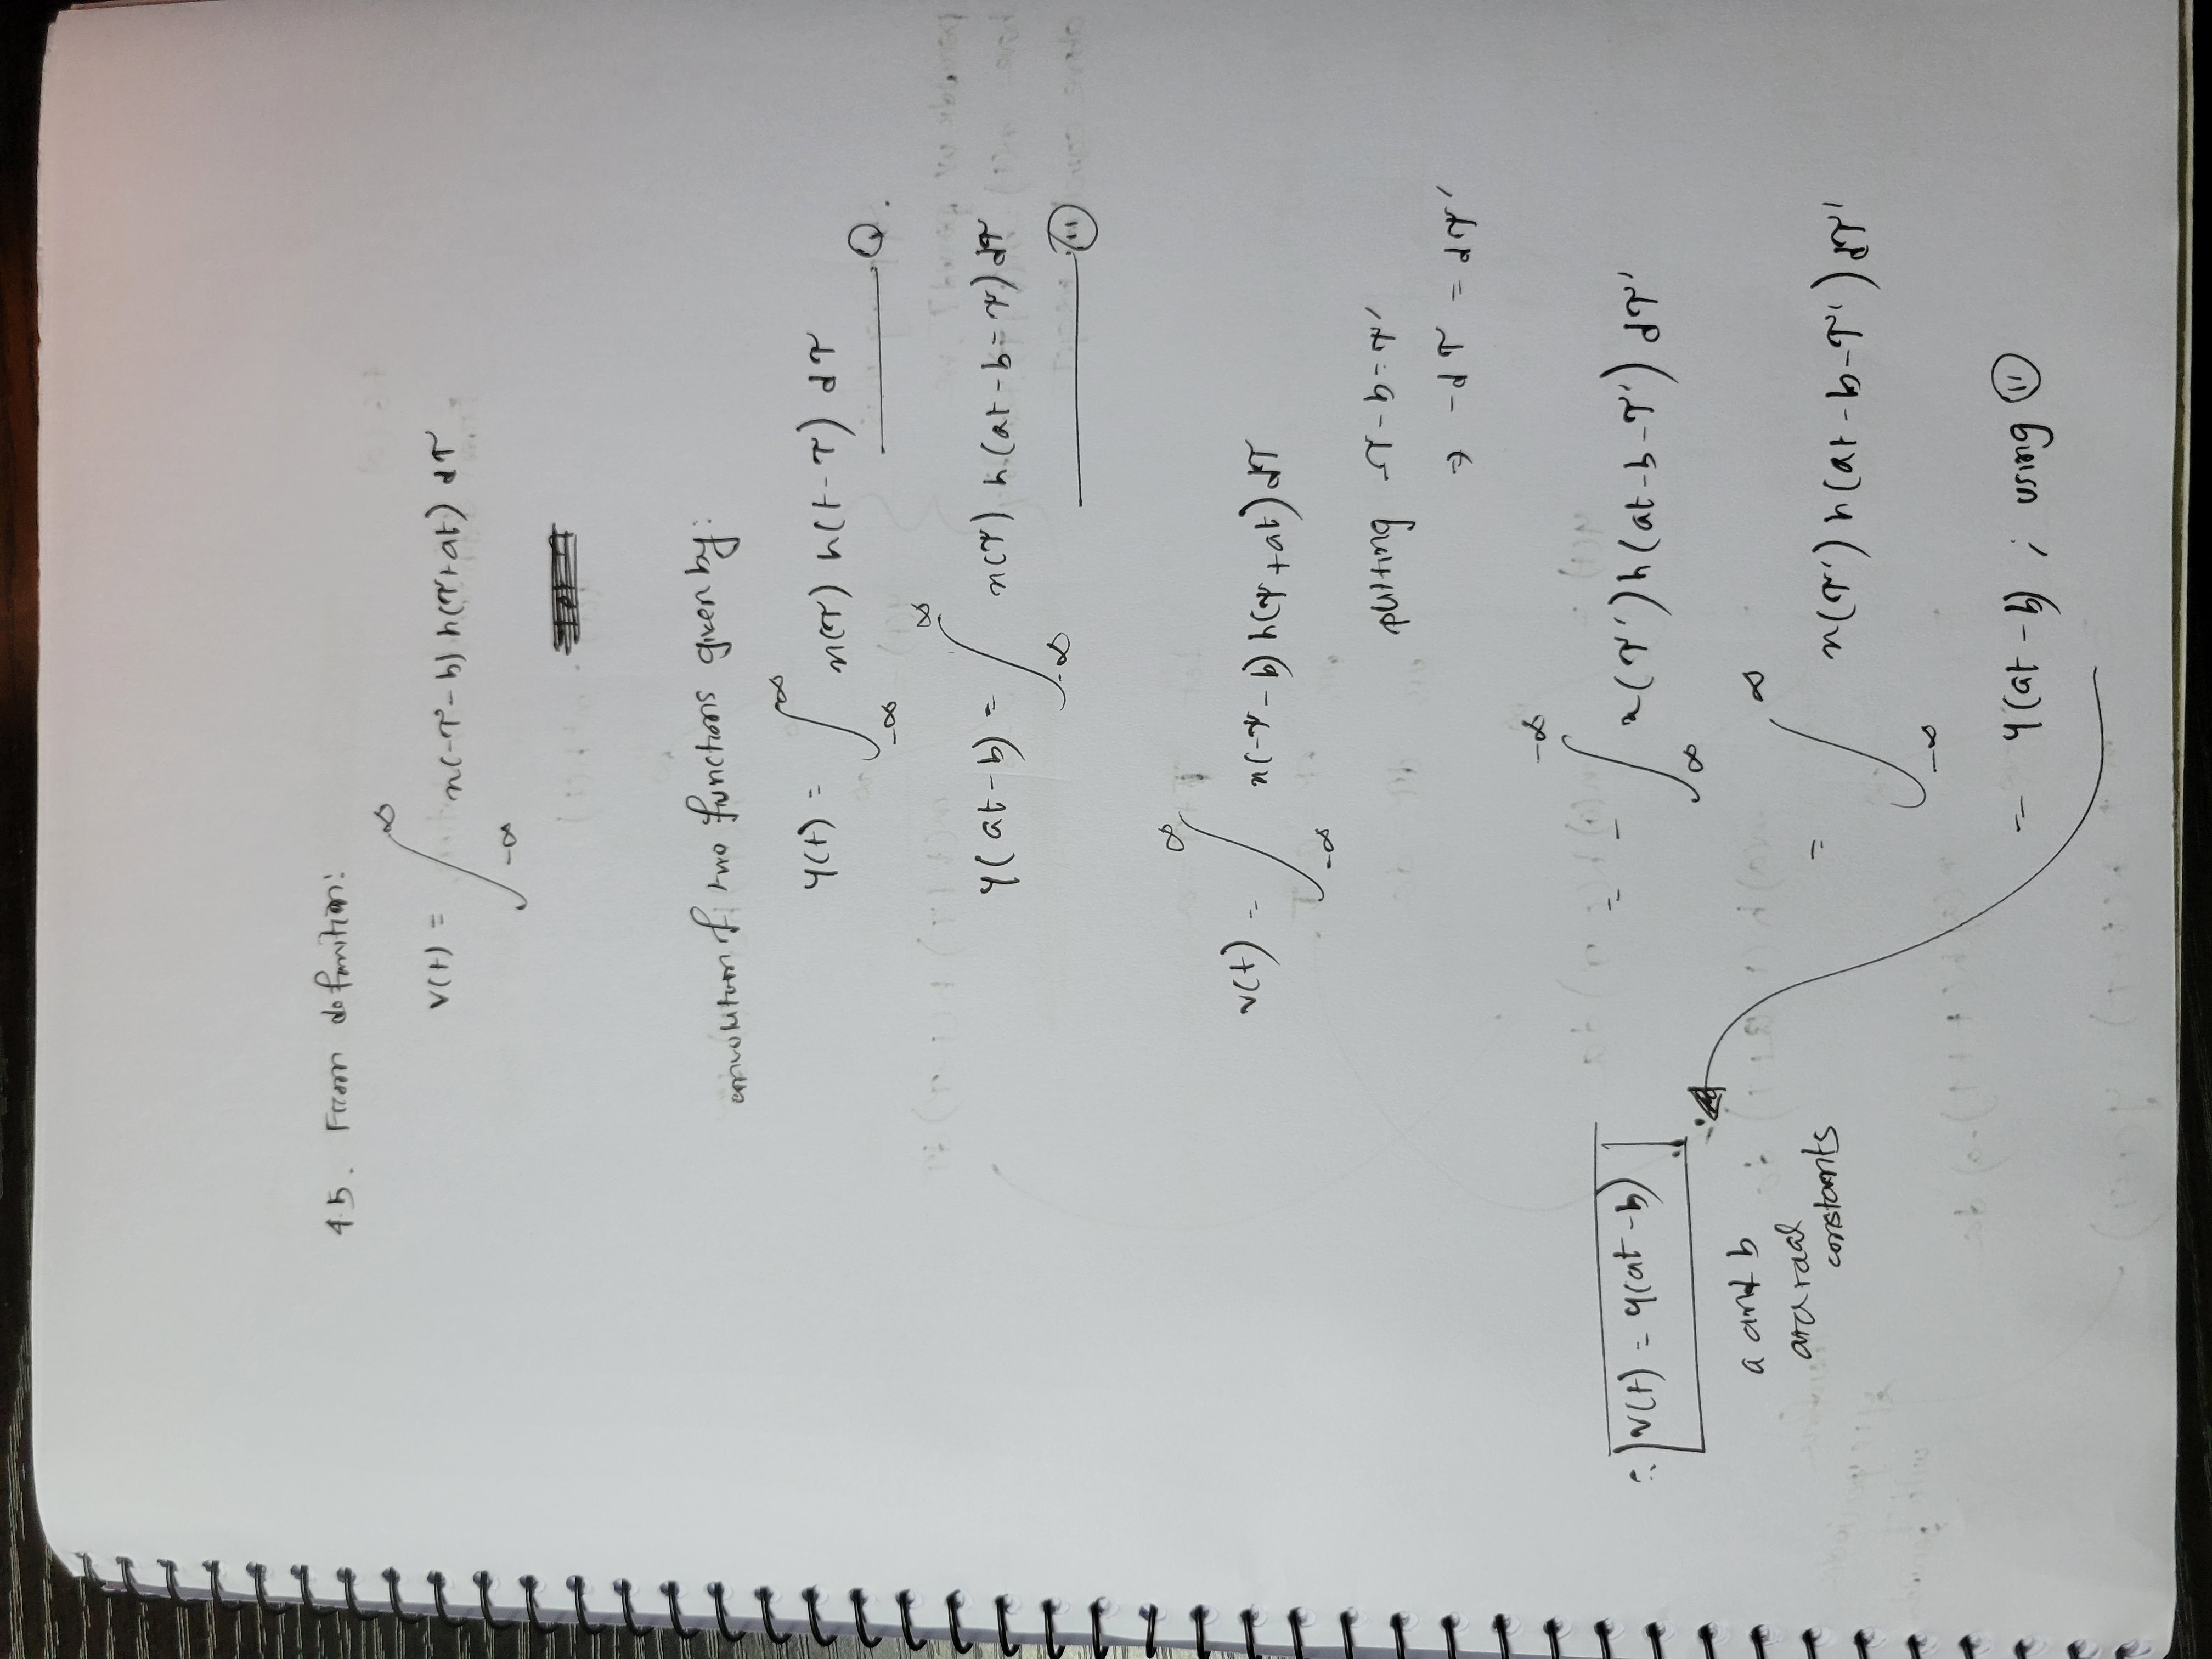 4.5. From definition:
v(t) = ∫_{-∞}^{∞} x(-τ-b) h(τ+at) dτ
convolution of two functions given by:
y(t) = ∫_{-∞}^{∞} x(τ) h(t-τ) dτ
y(at-b) = ∫_{-∞}^{∞} x(τ) h(at-b-τ) dτ
(ii)
v(t) = ∫_{-∞}^{∞} x(-τ-b) h(τ+at) dτ
putting -τ-b=τ'
⇒ -dτ = dτ'
= - ∫_{∞}^{-∞} x(τ') h(at-b-τ') dτ'
= ∫_{-∞}^{∞} x(τ') h(at-b-τ') dτ'
= y(at-b) ; using (ii)
∴ v(t) = y(at-b)
a and b
are real
constants